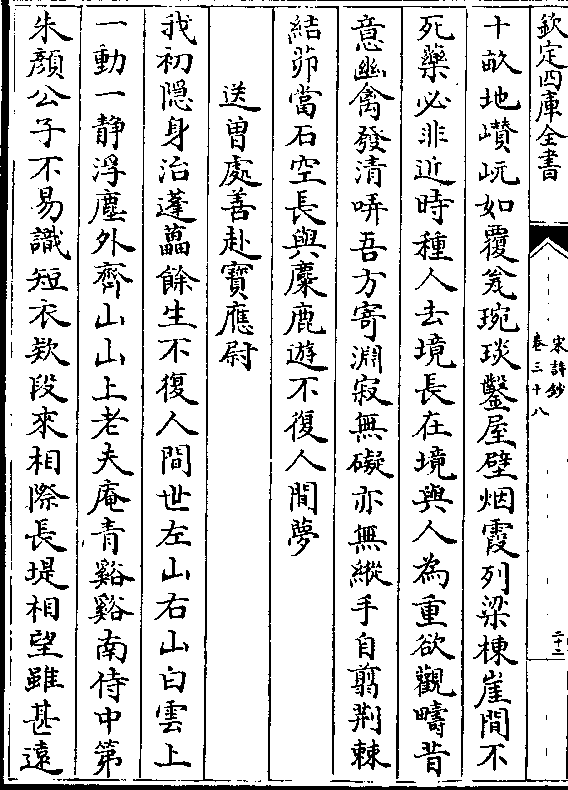 欽定四庫全書
宋詩鈔
卷三十八
二十二
十畝地巑岏如覆瓮琬琰鑿屋壁烟霞列梁棟崖間不
死藥必非近時種人去境長在境與人為重欲觀疇昔
意幽禽發清哢吾方寄淵寂無礙亦無縱手自翦荆棘
結茆當石空長與麋鹿遊不復人間夢
送曽處善赴寳應尉
我初隠身治蓬藟餘生不復人間世左山右山白雲上
一動一静浮塵外齊山山上老夫庵青谿谿南侍中第
朱顔公子不易識短衣欵段來相際長堤相望雖甚遠